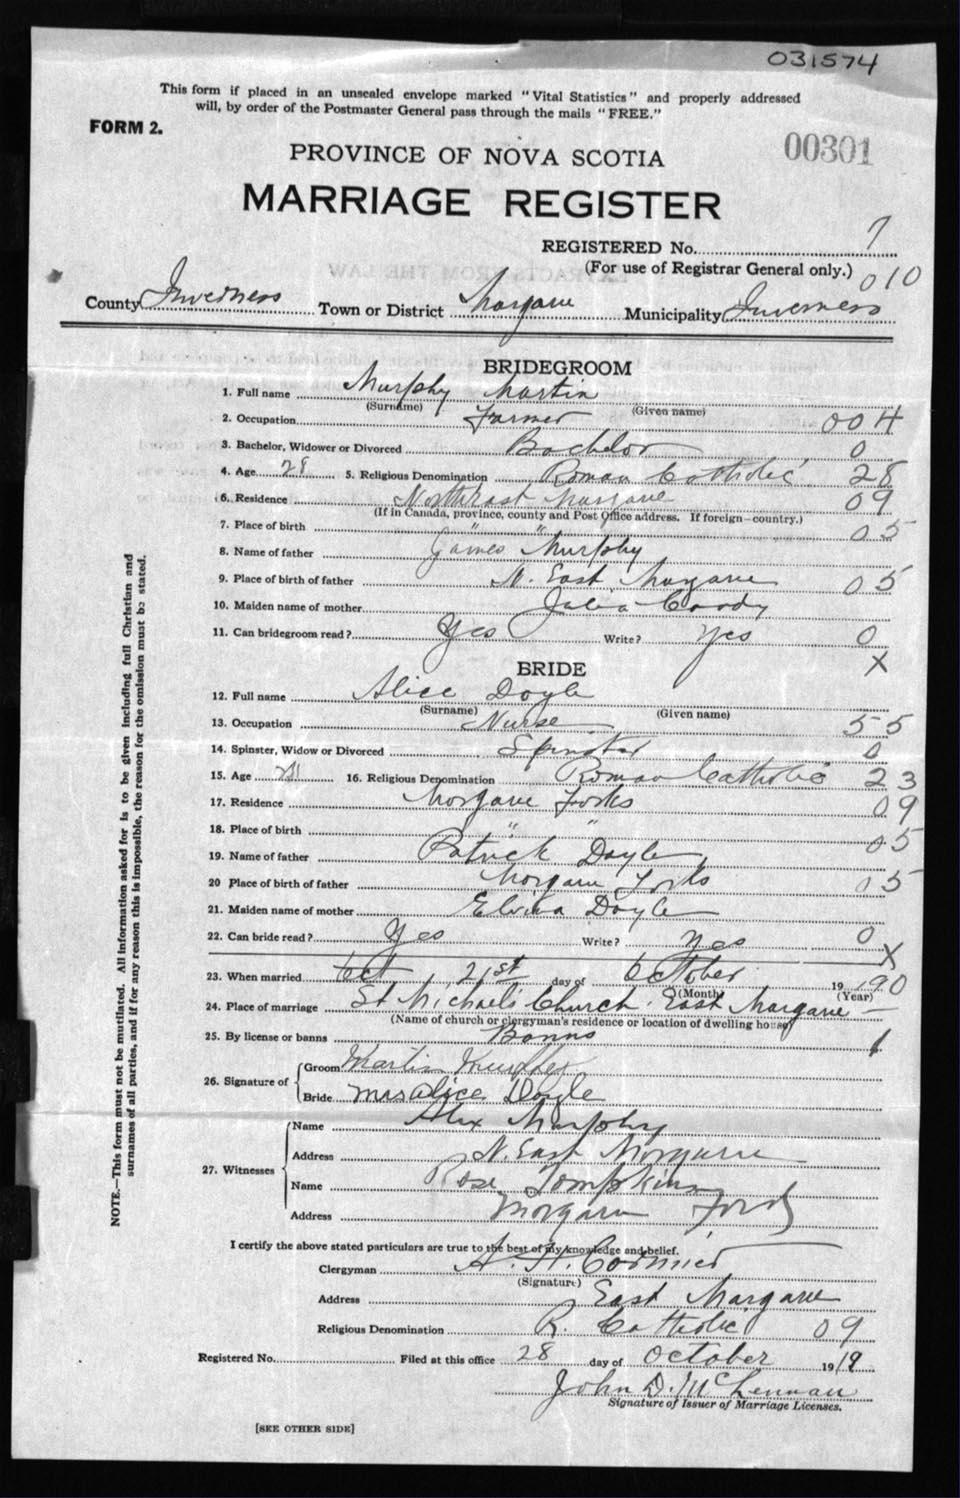 031574
This form if placed in an unsealed envelope marked "Vital Statistics" and properly addressed
will, by order of the Postmaster General pass through the mails "FREE."
FORM 2.
00301
PROVINCE OF NOVA SCOTIA
MARRIAGE REGISTER
REGISTERED No. 7
(For use of Registrar General only.) 010
County Inverness Town or District Margaree Municipality Inverness
BRIDEGROOM
1. Full name Murphy Martin
(Surname) (Given name)
2. Occupation Farmer 004
3. Bachelor, Widower or Divorced Bachelor 0
4. Age 28 5. Religious Denomination Roman Catholic 28
6. Residence Northeast Margaree 09
(If in Canada, province, county and Post Office address. If foreign—country.)
7. Place of birth " " 05
8. Name of father James Murphy
9. Place of birth of father N. East Margaree 05
10. Maiden name of mother Julia Coady
11. Can bridegroom read? Yes Write? Yes 0
X
BRIDE
12. Full name Alice Doyle
(Surname) (Given name)
13. Occupation Nurse 55
14. Spinster, Widow or Divorced Spinster 0
15. Age 16. Religious Denomination Roman Catholic 23
17. Residence Margaree Forks 09
18. Place of birth " " 05
19. Name of father Patrick Doyle
20 Place of birth of father Margaree Forks 05
21. Maiden name of mother Doyle
22. Can bride read? Yes Write? Yes 0
X
23. When married Oct, 21st day of October 19
(Month) (Year)
24. Place of marriage St Michael's Church. East Margaree —
(Name of church or clergyman's residence or location of dwelling house)
25. By license or banns Banns 1
26. Signature of Groom Martin Murphy
Bride Mrs Alice Doyle
27. Witnesses
Name Alex Murphy
Address N. East Margaree
Name Rose Tompkins
Address Margaree Fords
I certify the above stated particulars are true to the best of my knowledge and belief.
Clergyman A. H. Cormier
(Signature)
Address East Margaree
Religious Denomination R. Catholic 09
Registered No. Filed at this office 28 day of October 1919
John D. McLennan
Signature of Issuer of Marriage Licenses.
[SEE OTHER SIDE]
NOTE.—This form must not be mutilated. All information asked for is to be given including full Christian and
surnames of all parties, and if for any reason this is impossible, the reason for the omission must be stated.